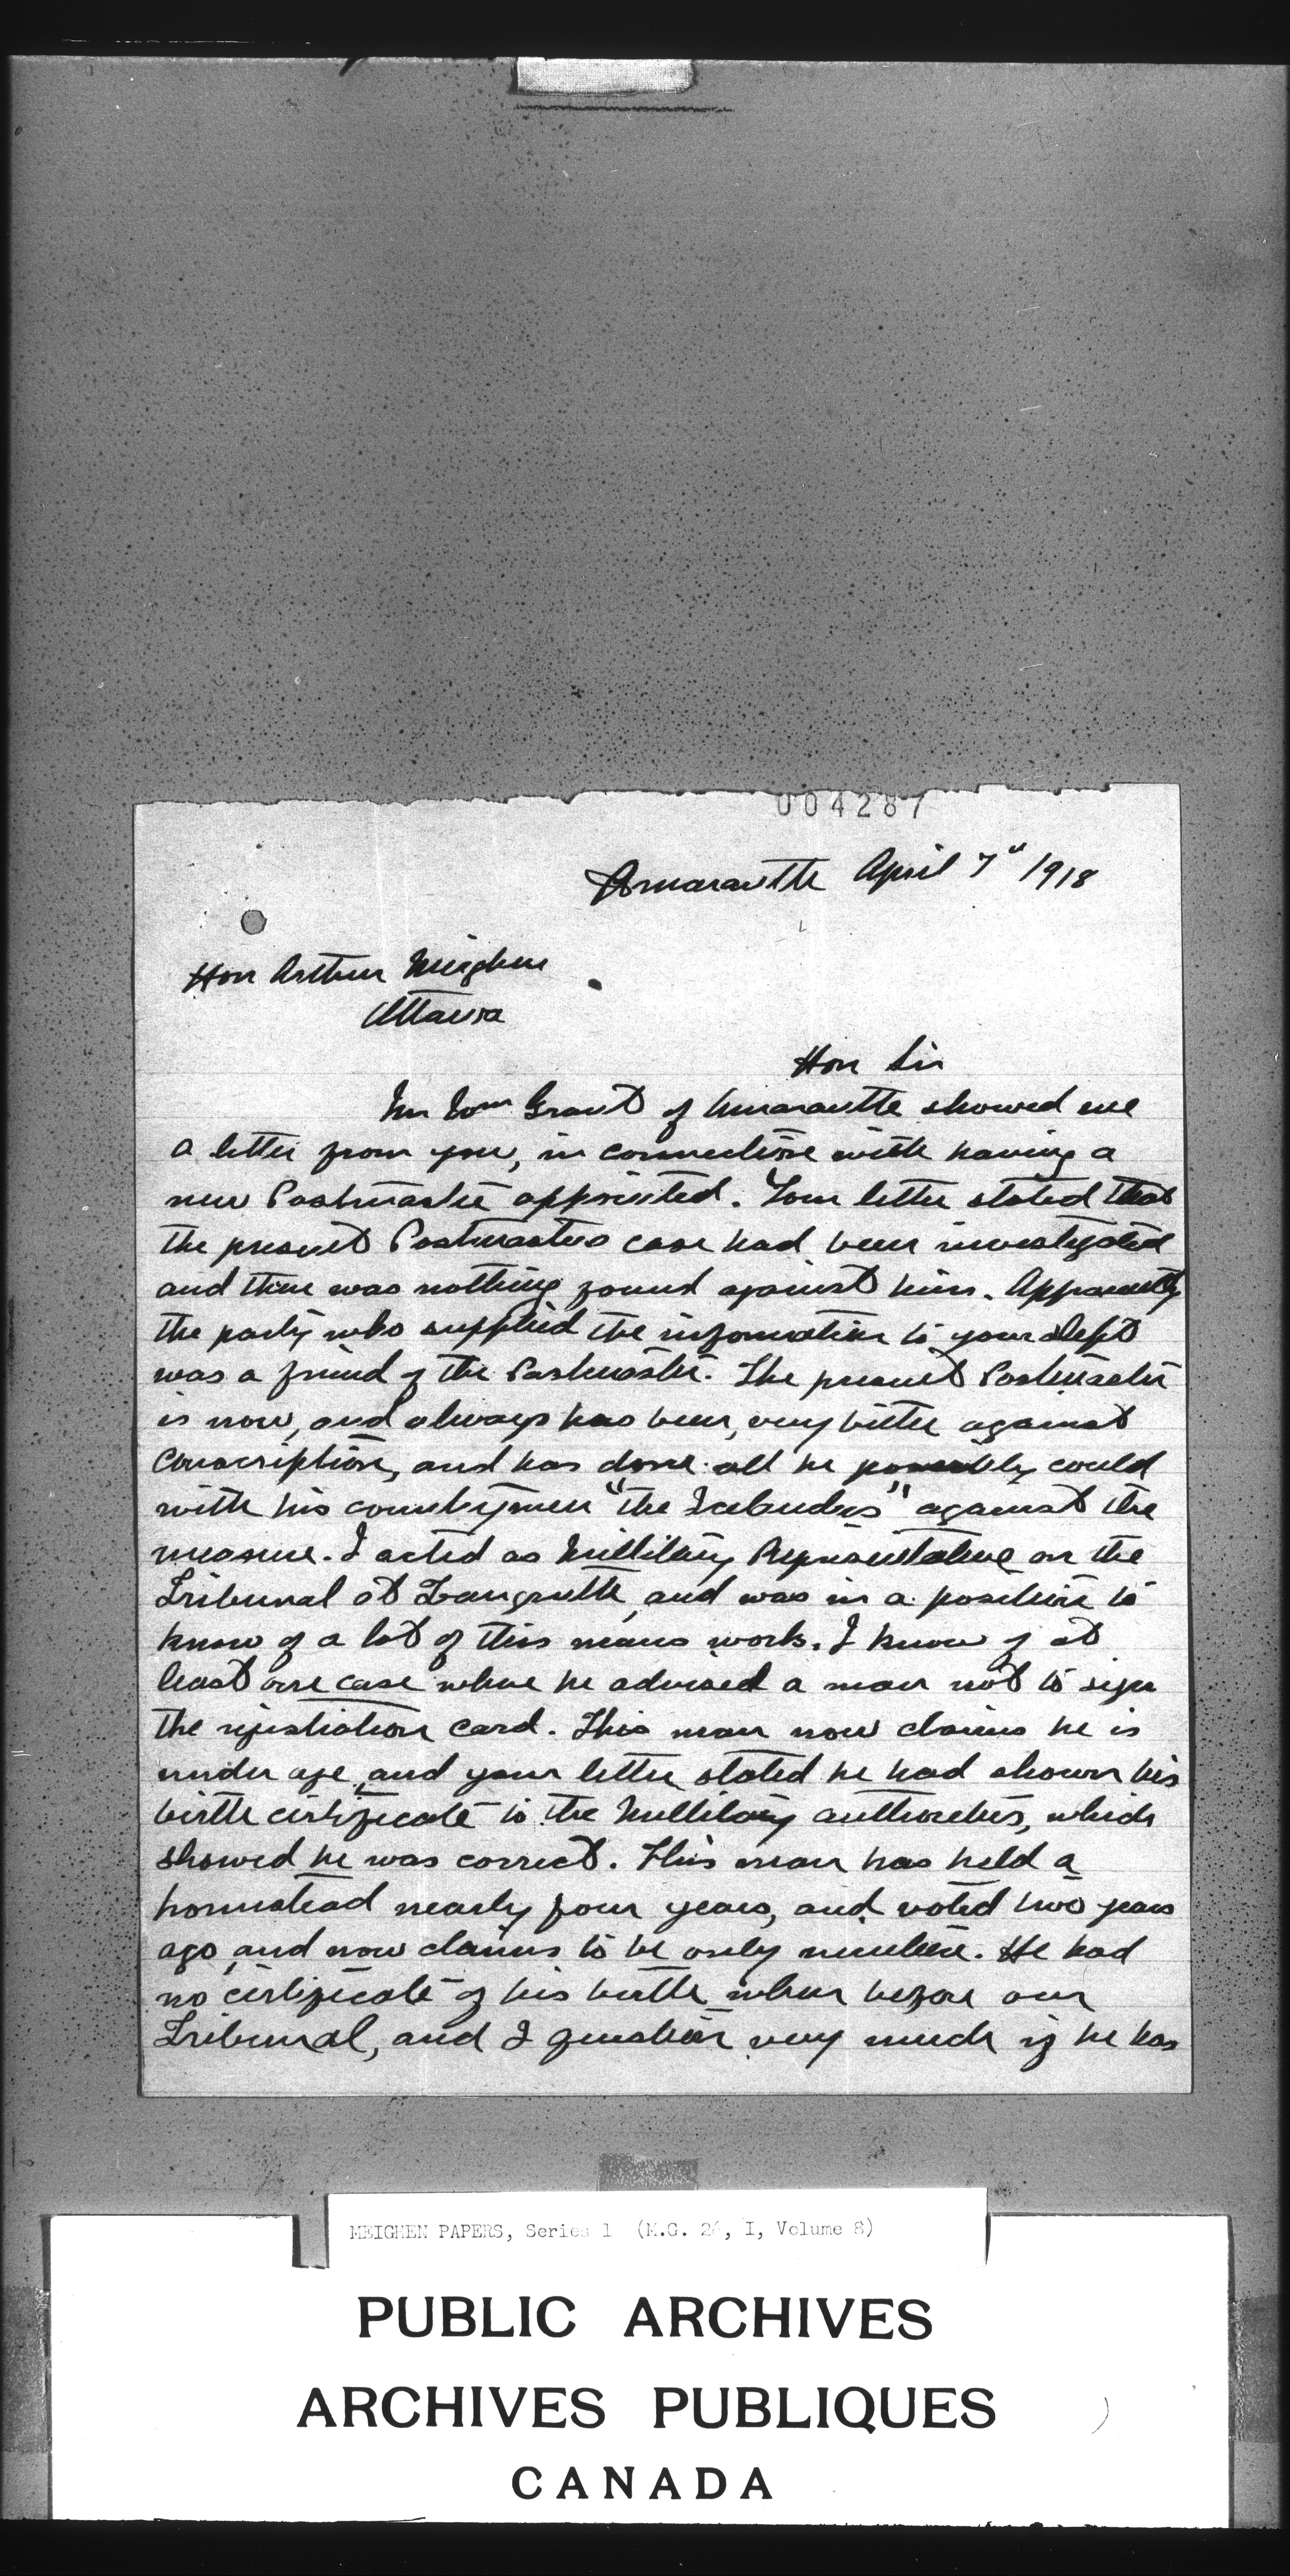 004287
Amaranthe April 7" 1918
Hon Arthur Meighen
Ottawa
Hon Sir
Mr Wm Grant of Amaranthe showed me
a letter from you, in connection with having a
new Postmaster appointed. Your letter stated that
the present Postmasters case had been investigated
and there was nothing found against him. Apparently
the party who supplied the information to your dept
was a friend of the Postmaster. The present Postmaster
is now, and always has been, very bitter against
Conscription, and has done all he possibly could
with his countrymen "the Icelanders" against the
measure. I acted as Millitary Representative on the
Tribunal at Langruth, and was in a position to
know of a lot of this mans work. I know of at
least one case where he advised a man not to sign
the registration card. This man now claims he is
under age, and your letter stated he had shown his
birth certificate to the Millitary authorities, which
showed he was correct. This man has held a
homestead nearly four years, and voted two years
ago, and now claims to be only nineteen. He had
no certificate of his birth when before our
Tribunal, and I question very much if he has
MEIGHEN PAPERS, Series 1 (M.G. 26, I, Volume 8)
PUBLIC ARCHIVES
ARCHIVES PUBLIQUES
CANADA